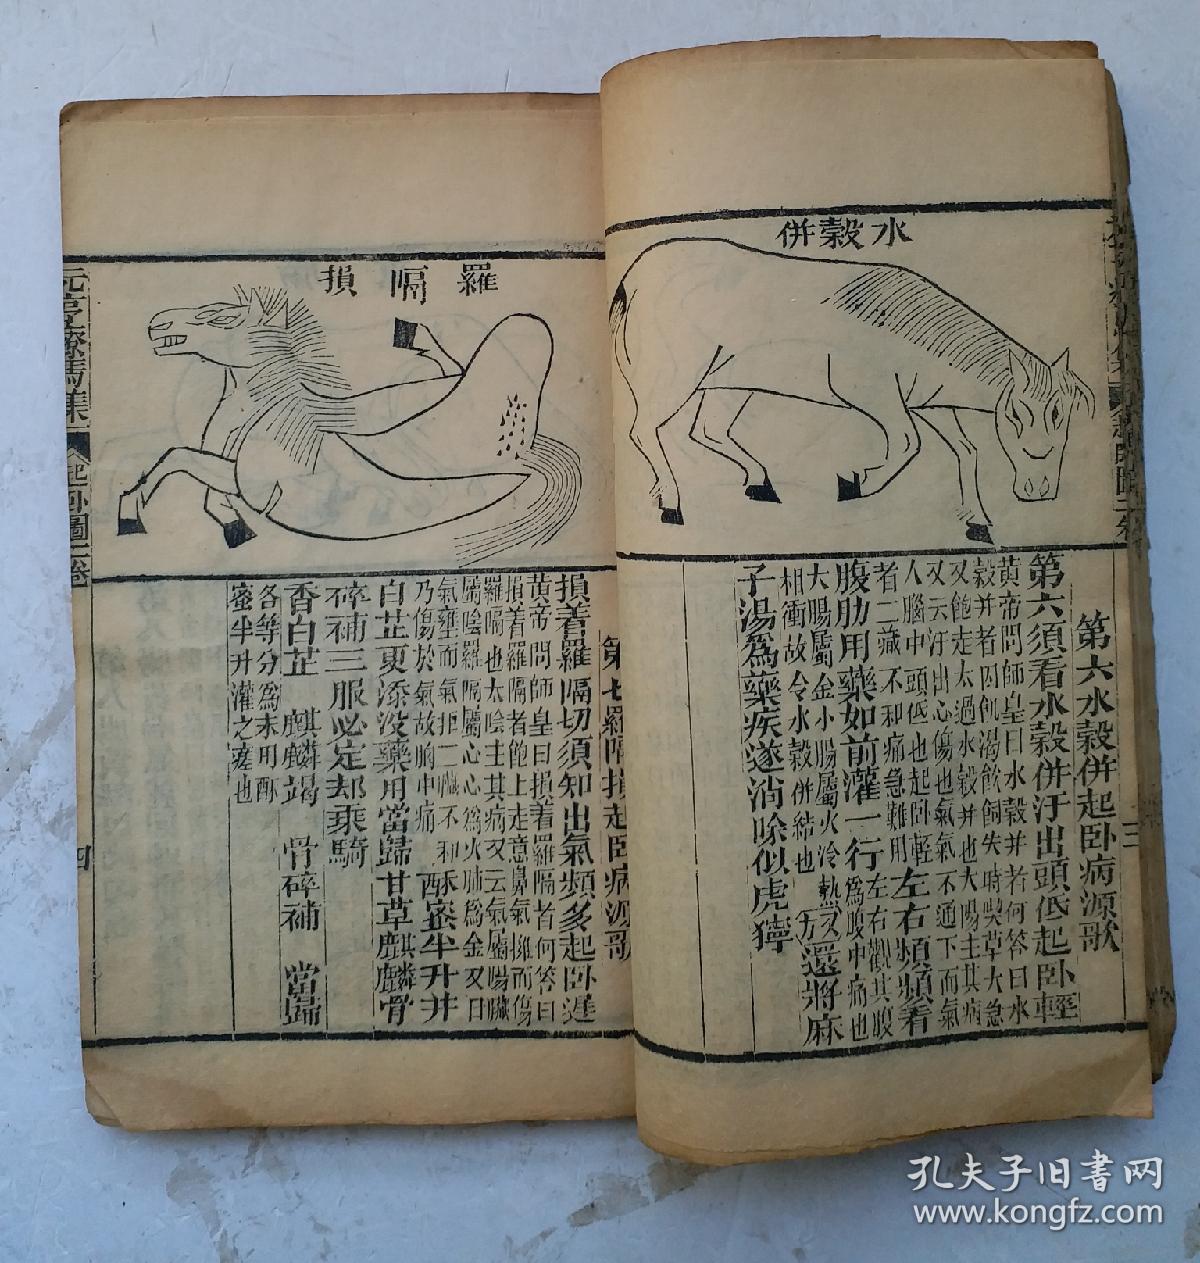 水穀併
第六水穀併起卧病源歌
第六須看水穀併汗出頭低起卧輕
黄帝問師皇曰水穀并者何答曰水
穀并者因飢渴飲飼失時喫草大急
又飽走太過水穀并也大陽主其病
又云汗出心傷也氣氣不通下而氣
人腦中頭低也起卧輕
者二藏不和痛急難用左右頻頻看
腹肋用藥如前灌一行爲腹中痛也左右觀其腹
大腸屬金小腸屬火冷熱
相衝故令水穀併結也
又方還將麻
子湯爲藥疾遂消除似虎獰
三
羅隔損
第七羅隔損起卧病源歌
損着羅隔切須知出氣頻多起卧遲
黄帝問師皇曰損着羅隔者何答曰
損着羅隔者飽上走意鼻氣擁而傷
羅隔也太陰主其病又云氣屬陽臟
屬陰羅隔屬心心爲火肺爲金又曰
氣壅而氣拒二臟不和
乃傷於氣故胸中痛
酥蜜半升并
白芷更添没藥用當歸甘草麒麟骨
碎補三服必定却乘騎
香白芷 麒麟竭 骨碎補 當歸
各等分爲末用酥
蜜半升灌之瘥也
元亨療馬集
起卧圖一卷
四
孔夫子旧書网
www.kongfz.com